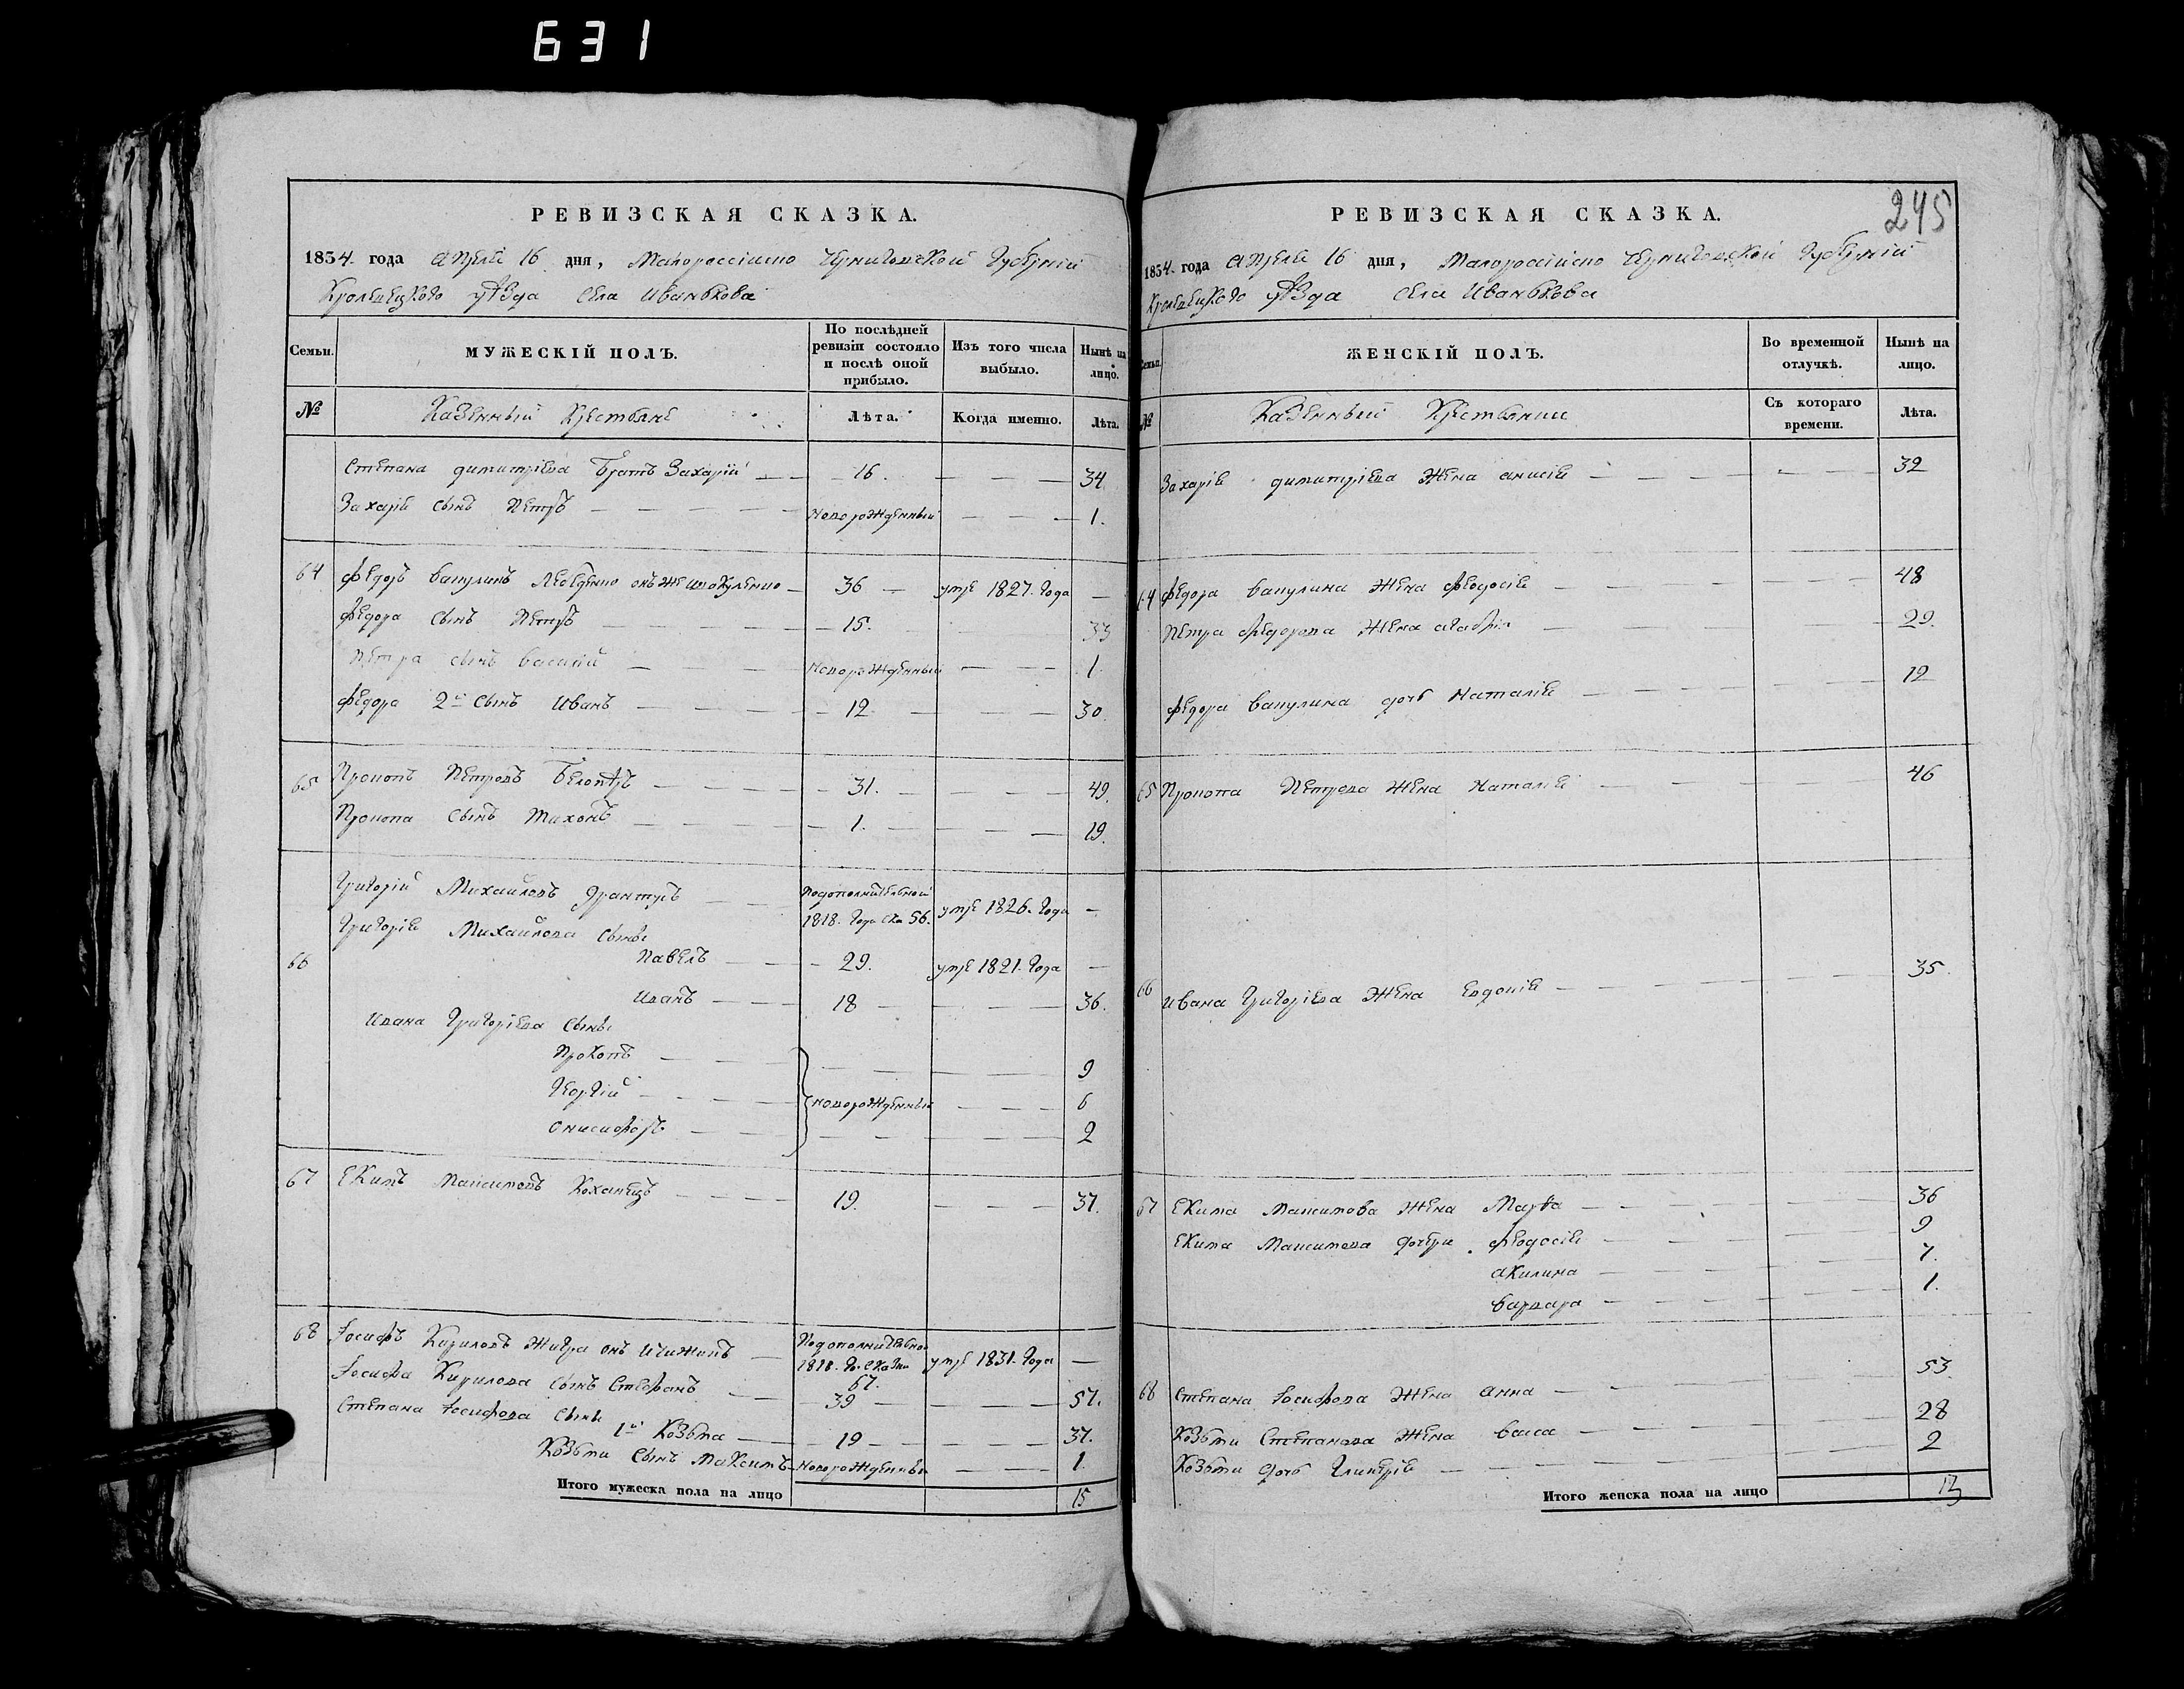 631
РЕВИЗСКАЯ СКАЗКА.
1834. года Апреля 16 дня, Малороссійско Черниговской Губерніи
Кролевецкого уѣзда села Иванькова
Семьи.
МУЖЕСКІЙ ПОЛЪ.
По послѣдней ревизіи состояло и послѣ оной прибыло.
Изъ того числа выбыло.
Нынѣ на лицо.
№
Казенный Крестьяне
Лѣта.
Когда именно.
Лѣта.
Степана димитріева братъ Захарій — 16. — 34
Захарія сынъ Петръ — новорожденный — 1.
64 Федоръ Вакулинъ онъ же — 36 — умре 1827. года —
Федора сынъ Петръ — 15. 33
Петра сынъ Василій — новорожденный — 1.
Федора 2й сынъ Иванъ — 12 — 30.
65 Прокопъ Петровъ — 31. — 49.
Прокопа сынъ Тихонъ — 1. — 19.
Григорій Михайловъ — Подополнительной
1818. года 56. умре 1826. года —
Григорія Михайлова сыны
66 Павелъ — 29. умре 1821. года —
Иванъ — 18 — 36.
Ивана Григоріева сыны
Прокопъ — 9
Георгій — новорожденный — 6
Онисифоръ — 2
67 Екимъ Максимовъ Коханецъ — 19. — 37.
68 Іосифъ Кириловъ Жигра онъ — Подополнительной
1818. го. сказки 67. умре 1831. года —
Іосифа Кирилова сынъ Стефанъ — 39 — 57.
Степана Іосифова сыны
1й Козьма — 19 — 37.
Козьми сынъ Максимъ — новорожденный — 1
Итого мужеска пола на лицо 15
245
РЕВИЗСКАЯ СКАЗКА.
1834. года Апреля 16 дня, Малоросійско Черниговской Губерніи
Кролевецкого уѣзда села Иванькова
Семьи.
ЖЕНСКІЙ ПОЛЪ.
Во временной отлучкѣ.
Нынѣ на лицо.
№
Казенный Крестьянки
Съ котораго времени.
Лѣта.
Захарія димитріева жена анисія — 32
64 Федора Вакулина жена Феодосія — 48
Петра Федорова жена — 29.
Федора Вакулина дочь Наталія — 12
65 Прокопа Петрова жена Наталія — 46
66 Ивана Григоріева жена Евдокія — 35.
67 Екима Максимова жена Марва — 36
Екима Максимова дочери Феодосія — 9
акилина — 7.
варвара — 1.
68 Степана Іосифова жена анна — 53.
Козьми Степанова жена васса — 28
Козьми дочь Гликерія — 2
Итого женска пола на лицо 13